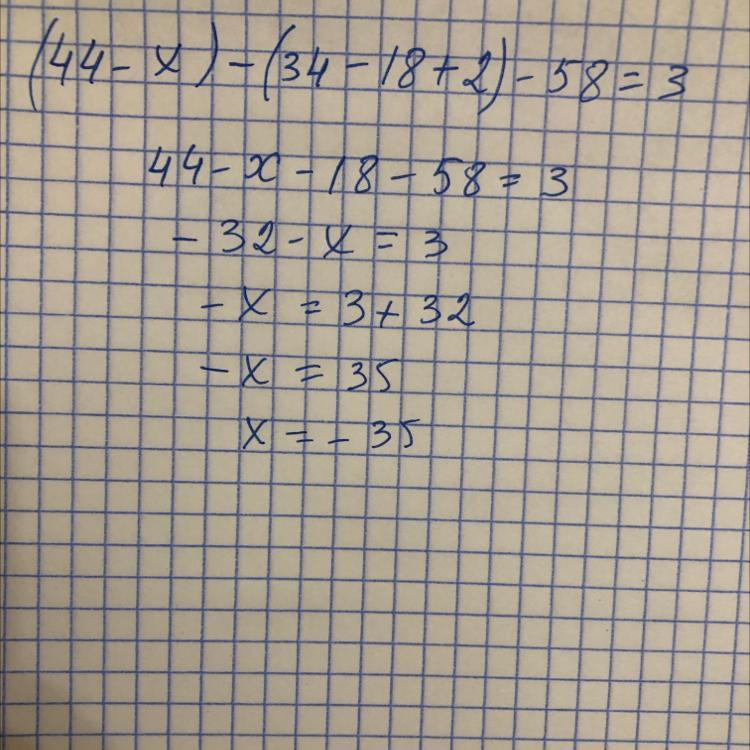 (44 - x) - (34 - 18 + 2) - 58 = 3
44 - x - 18 - 58 = 3
- 32 - x = 3
- x = 3 + 32
- x = 35
x = - 35